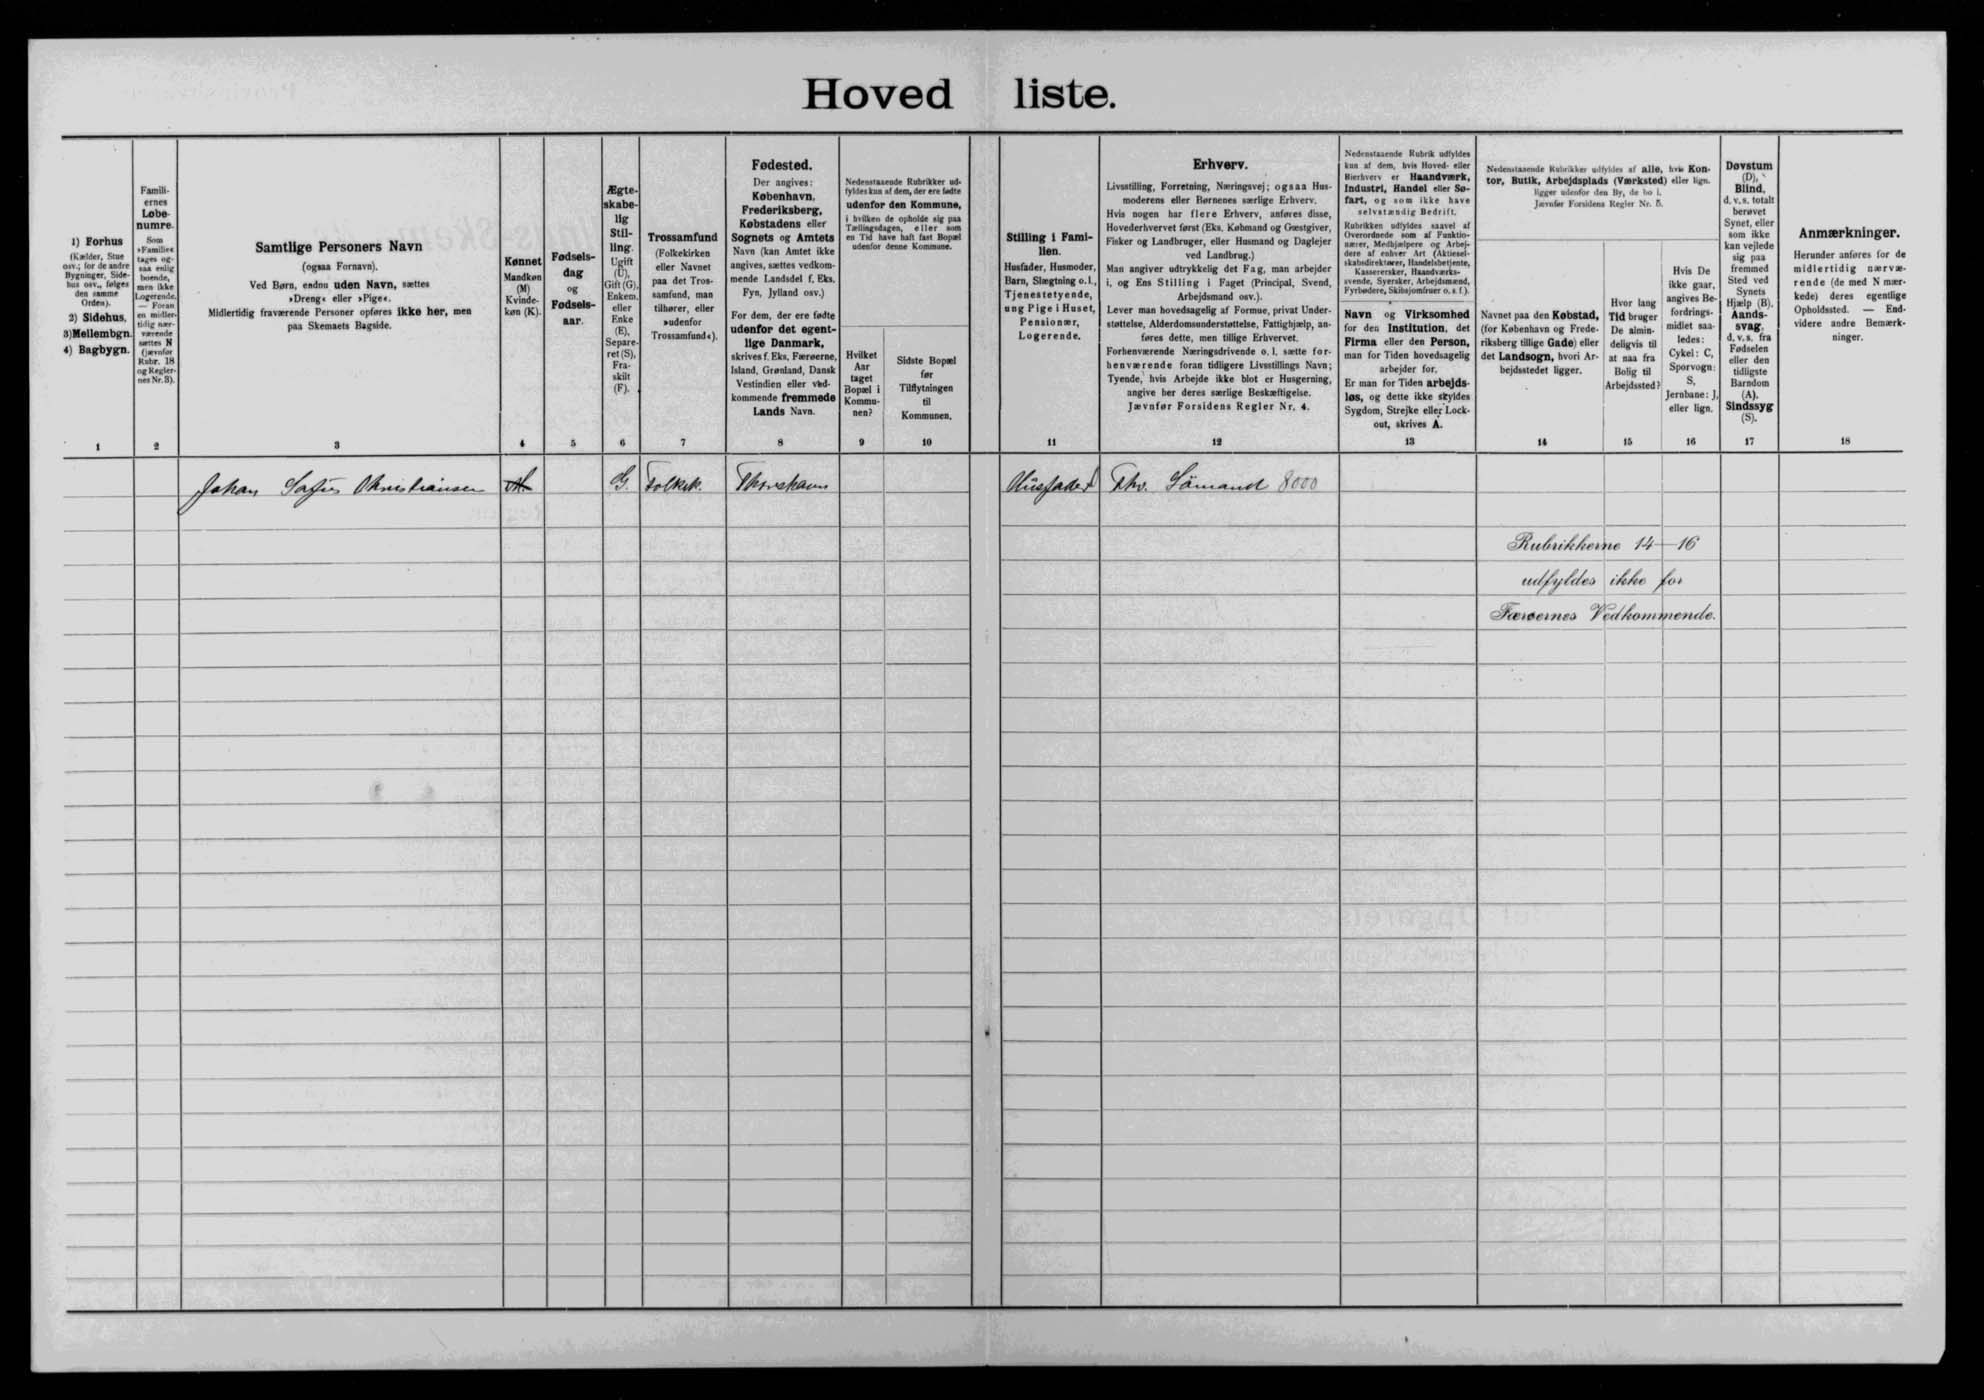 Hoved liste.
1) Forhus
(Kælder, Stue
osv.; for de andre
Bygninger, Side-
hus osv., følges
den samme
Orden).
2) Sidehus.
3) Mellembgn.
4) Bagbygn.
1
Famili-
ernes
Løbe-
numre.
Som
»Familie«
tages og-
saa enlig
boende,
men ikke
Logerende.
— Foran
en midler-
tidig nær-
værende
sættes N
(jævnfør
Rubr. 18
og Regler-
nes Nr. 3).
2
Samtlige Personers Navn
(ogsaa Fornavn).
Ved Børn, endnu uden Navn, sættes
»Dreng« eller »Pige«.
Midlertidig fraværende Personer opføres ikke her, men
paa Skemaets Bagside.
3
Kønnet
Mandkøn
(M)
Kvinde-
køn (K).
4
Fødsels-
dag
og
Fødsels-
aar.
5
Ægte-
skabe-
lig
Stil-
ling.
Ugift
(U),
Gift (G),
Enkem.
eller
Enke
(E),
Separe-
ret (S),
Fra-
skilt
(F).
6
Trossamfund
(Folkekirken
eller Navnet
paa det Tros-
samfund, man
tilhører, eller
»udenfor
Trossamfund«).
7
Fødested.
Der angives:
København,
Frederiksberg,
Købstadens eller
Sognets og Amtets
Navn (kan Amtet ikke
angives, sættes vedkom-
mende Landsdel f. Eks.
Fyn, Jylland osv.)
For dem, der ere fødte
udenfor det egent-
lige Danmark,
skrives f. Eks. Færøerne,
Island, Grønland, Dansk
Vestindien eller ved-
kommende fremmede
Lands Navn.
8
Nedenstaaende Rubrikker ud-
fyldes kun af dem, der ere fødte
udenfor den Kommune,
i hvilken de opholde sig paa
Tællingsdagen, eller som
en Tid have haft fast Bopæl
udenfor denne Kommune.
Hvilket
Aar
taget
Bopæl i
Kommu-
nen?
9
Sidste Bopæl
før
Tilflytningen
til
Kommunen.
10
Stilling i Fami-
lien.
Husfader, Husmoder,
Barn, Slægtning o. l.,
Tjenestetyende,
ung Pige i Huset,
Pensionær,
Logerende.
11
Erhverv.
Livsstilling, Forretning, Næringsvej; ogsaa Hus-
moderens eller Børnenes særlige Erhverv.
Hvis nogen har flere Erhverv, anføres disse,
Hovederhvervet først (Eks. Købmand og Gæstgiver,
Fisker og Landbruger, eller Husmand og Daglejer
ved Landbrug.)
Man angiver udtrykkelig det Fag, man arbejder
i, og Ens Stilling i Faget (Principal, Svend,
Arbejdsmand osv.).
Lever man hovedsagelig af Formue, privat Under-
støttelse, Alderdomsunderstøttelse, Fattighjælp, an-
føres dette, men tillige Erhvervet.
Forhenværende Næringsdrivende o. l. sætte for-
henværende foran tidligere Livsstillings Navn;
Tyende, hvis Arbejde ikke blot er Husgerning,
angive her deres særlige Beskæftigelse.
Jævnfør Forsidens Regler Nr. 4.
12
Nedenstaaende Rubrik udfyldes
kun af dem, hvis Hoved- eller
Bierhverv er Haandværk,
Industri, Handel eller Sø-
fart, og som ikke have
selvstændig Bedrift.
Rubrikken udfyldes saavel af
Overordnede som af Funktio-
nærer, Medhjælpere og Arbej-
dere af enhver Art (Aktiesel-
skabsdirektører, Handelsbetjente,
Kasserersker, Haandværks-
svende, Syersker, Arbejdsmænd,
Fyrbødere, Skibsjomfruer o. s. f.).
Navn og Virksomhed
for den Institution, det
Firma eller den Person,
man for Tiden hovedsagelig
arbejder for.
Er man for Tiden arbejds-
løs, og dette ikke skyldes
Sygdom, Strejke eller Lock-
out, skrives A.
13
Nedenstaaende Rubrikker udfyldes af alle, hvis Kon-
tor, Butik, Arbejdsplads (Værksted) eller lign.
ligger udenfor den By, de bo i.
Jævnfør Forsidens Regler Nr. 5.
Navnet paa den Købstad,
(for København og Frede-
riksberg tillige Gade) eller
det Landsogn, hvori Ar-
bejdsstedet ligger.
14
Hvor lang
Tid bruger
De almin-
deligvis til
at naa fra
Bolig til
Arbejdssted?
15
Hvis De
ikke gaar,
angives Be-
fordrings-
midlet saa-
ledes:
Cykel: C,
Sporvogn:
S,
Jernbane: J,
eller lign.
16
Døvstum
(D),
Blind,
d. v. s. totalt
berøvet
Synet, eller
som ikke
kan vejlede
sig paa
fremmed
Sted ved
Synets
Hjælp (B).
Aands-
svag,
d. v. s. fra
Fødselen
eller den
tidligste
Barndom
(A).
Sindssyg
(S).
17
Anmærkninger.
Herunder anføres for de
midlertidig nærvæ-
rende (de med N mær-
kede) deres egentlige
Opholdssted. — End-
videre andre Bemærk-
ninger.
18
Johan Sofus Christiansen M G. Folkek. Thorshavn Husfader Fhv. Sömand 8000
Rubrikkerne 14—16
udfyldes ikke for
Færøernes Vedkommende.